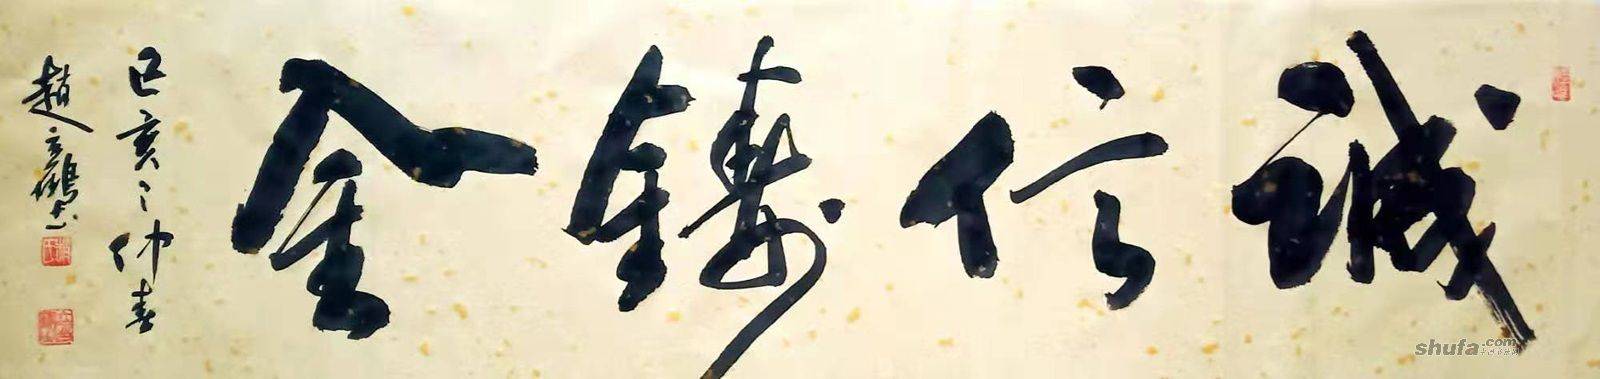 誠信鑄金
己亥之仲春
趙 鶴书
shufa.com